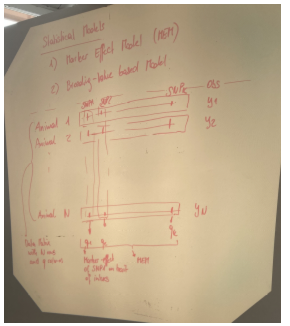 Statistical Models
1) Marker Effect Model (MEM)
2) Breeding-Value based Model
SNP1 SNP2 SNPk OBS
Animal 1 y1
Animal 2 y2
Animal N yN
Data Matrix
with N rows
and
Marker effect
of SNP1 on trait
of interest
MEM